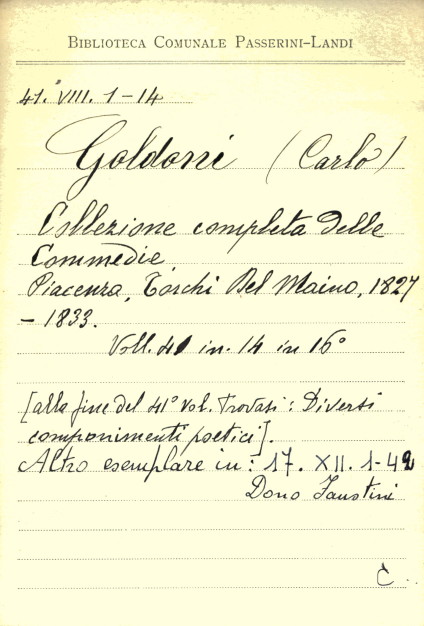 BIBLIOTECA COMUNALE PASSERINI-LANDI
41. VIII. 1-14
Goldoni (Carlo)
Collezione completa delle
Commedie.
Piacenza, Torchi Del Maino, 1827
- 1833.
Voll. 41 in 14 in 16°
[alla fine del 41° vol. Trovasi: Diversi
componimenti poetici].
Altro esemplare in: 17. XII. 1-42
Dono Faustini
C.